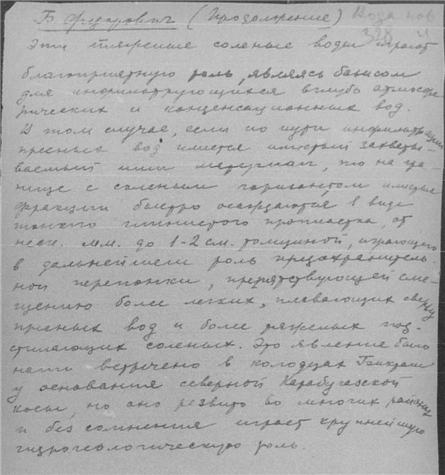 Б. Федорович (Продолжение)
Эти тяжелые соленые воды играют
благоприятную роль, являясь базисом
для инфильтрующихся вглубь атмосфе
рических и конденсационных вод.
В том случае, если по пути инфильтрации
пресных вод имеется илистый
материал, то на гра-
нице с соленым горизонтом илистые
фракции быстро осаждаются в виде
тонкого глинистого пропластка, от
неск. м.м. до 1-2 см. толщиной, играющего
в дальнейшем роль предохранитель-
ной перепонки, препятствующей сме-
щению более легких, плавающих сверху
пресных вод и более тяжелых под-
стилающих соленых. Это явление было
нами встречено в колодцах
у основания северной Карабугазской
косы, но оно развито во многих районах
и без сомнения играет крупнейшую
гидрогеологическую роль.